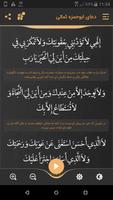 11:34
دعای ابوحمزه ثمالی
إِلٰهِي لَا تُؤَدِّبْنِي بِعُقُوبَتِكَ وَلَا تَمْكُرْ بِي فِي
حِيلَتِكَ مِنْ أَيْنَ لِيَ الْخَيْرُ يَا رَبِّ
وَلَا يُوجَدُ إِلَّا مِنْ عِنْدِكَ وَمِنْ أَيْنَ لِيَ النَّجَاةُ
وَلَا تُسْتَطَاعُ إِلَّا بِكَ
لَا الَّذِي أَحْسَنَ اسْتَغْنَىٰ عَنْ عَوْنِكَ وَرَحْمَتِكَ
وَلَا الَّذِي أَسَاءَ وَاجْتَرَأَ عَلَيْكَ